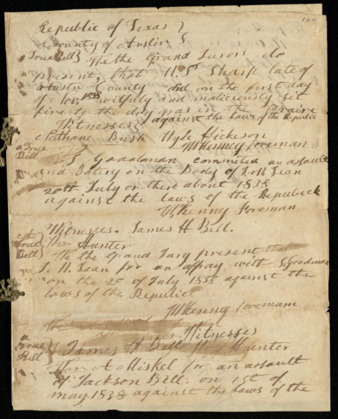 Republic of Texas }
County of Austin }
True Bill } We the Grand Jurors do
present, that W. P. Sharp late of
Austin County did on the first day
of Novr wilfully and maliciously set
fire to the dry grass in the Prairie
against the laws of the Republic
Witnesses
Nathanl Bush Wyle Hickeson
McKenney Foreman
a True
Bill
S. Goodman committed an assault
and Batery on the Body of L. H Lean
20th July or there about 1838
against the laws of the Republick
McKenny Foreman
Witnesses. James H Bell.
Wm Hunter
a
True
Bill
We the Grand Jury present
L. H. Lean for an affray with S Goodman
on the 20 of July 1838 against the
laws of the Republic
McKenny Foreman
Witnesses
a True
Bill
James H Bell W. Hunter
for an assault
of Jackson Bell. on 1st of
may 1838 against the laws of the